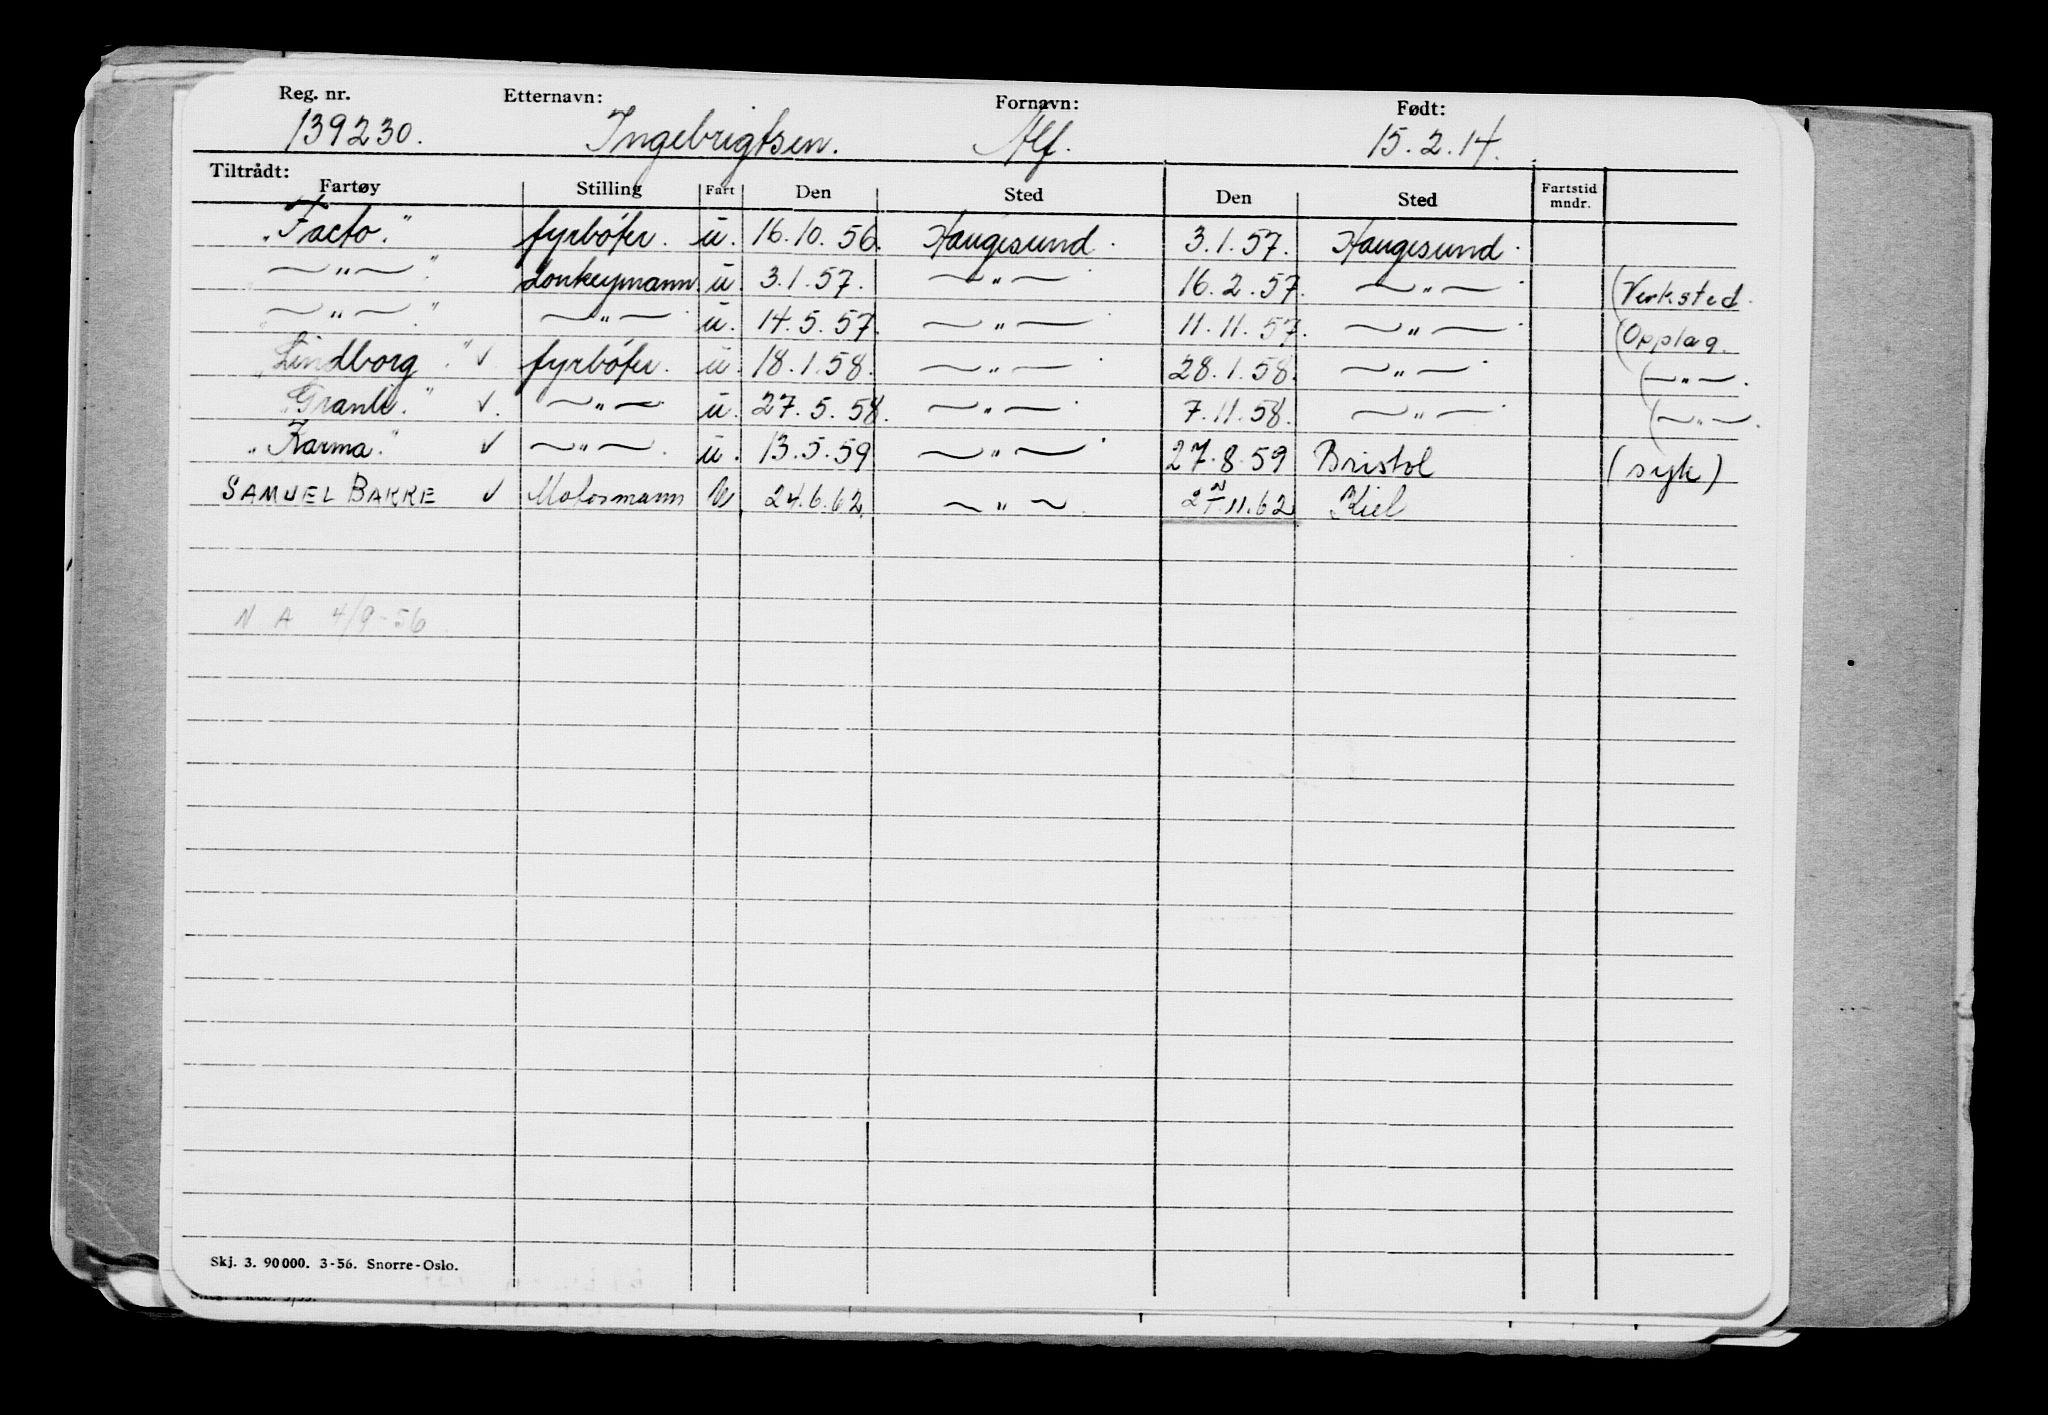 Reg. nr. Etternavn: Fornavn: Født:
139230. Ingebrigtsen. Alf. 15.2.14.
Tiltrådt:
Fartøy Stilling Fart Den Sted Den Sted Fartstid mndr.
"Facto." fyrbøter. u. 16.10.56. Haugesund. 3.1.57. Haugesund.
—"—" donkeymann. u. 3.1.57. —"— 16.2.57. —"— (Verksted.
—"—" —"— u. 14.5.57. —"— 11.11.57. —"— (Opplag.
"Lindborg" ✓ fyrbøter. u. 18.1.58. —"— 28.1.58. —"— (—"—.
"Granli." ✓. —"— u. 27.5.58. —"— 7.11.58. —"— (—"—.
"Karma." ✓ —"— u. 13.5.59 —"— 27.8.59 Bristol (syk)
SAMUEL BAKKE ✓ Motormann U 24.6.62. —"— .11.62 Kiel
N A 4/9-56
Skj. 3. 90000. 3-56. Snorre-Oslo.